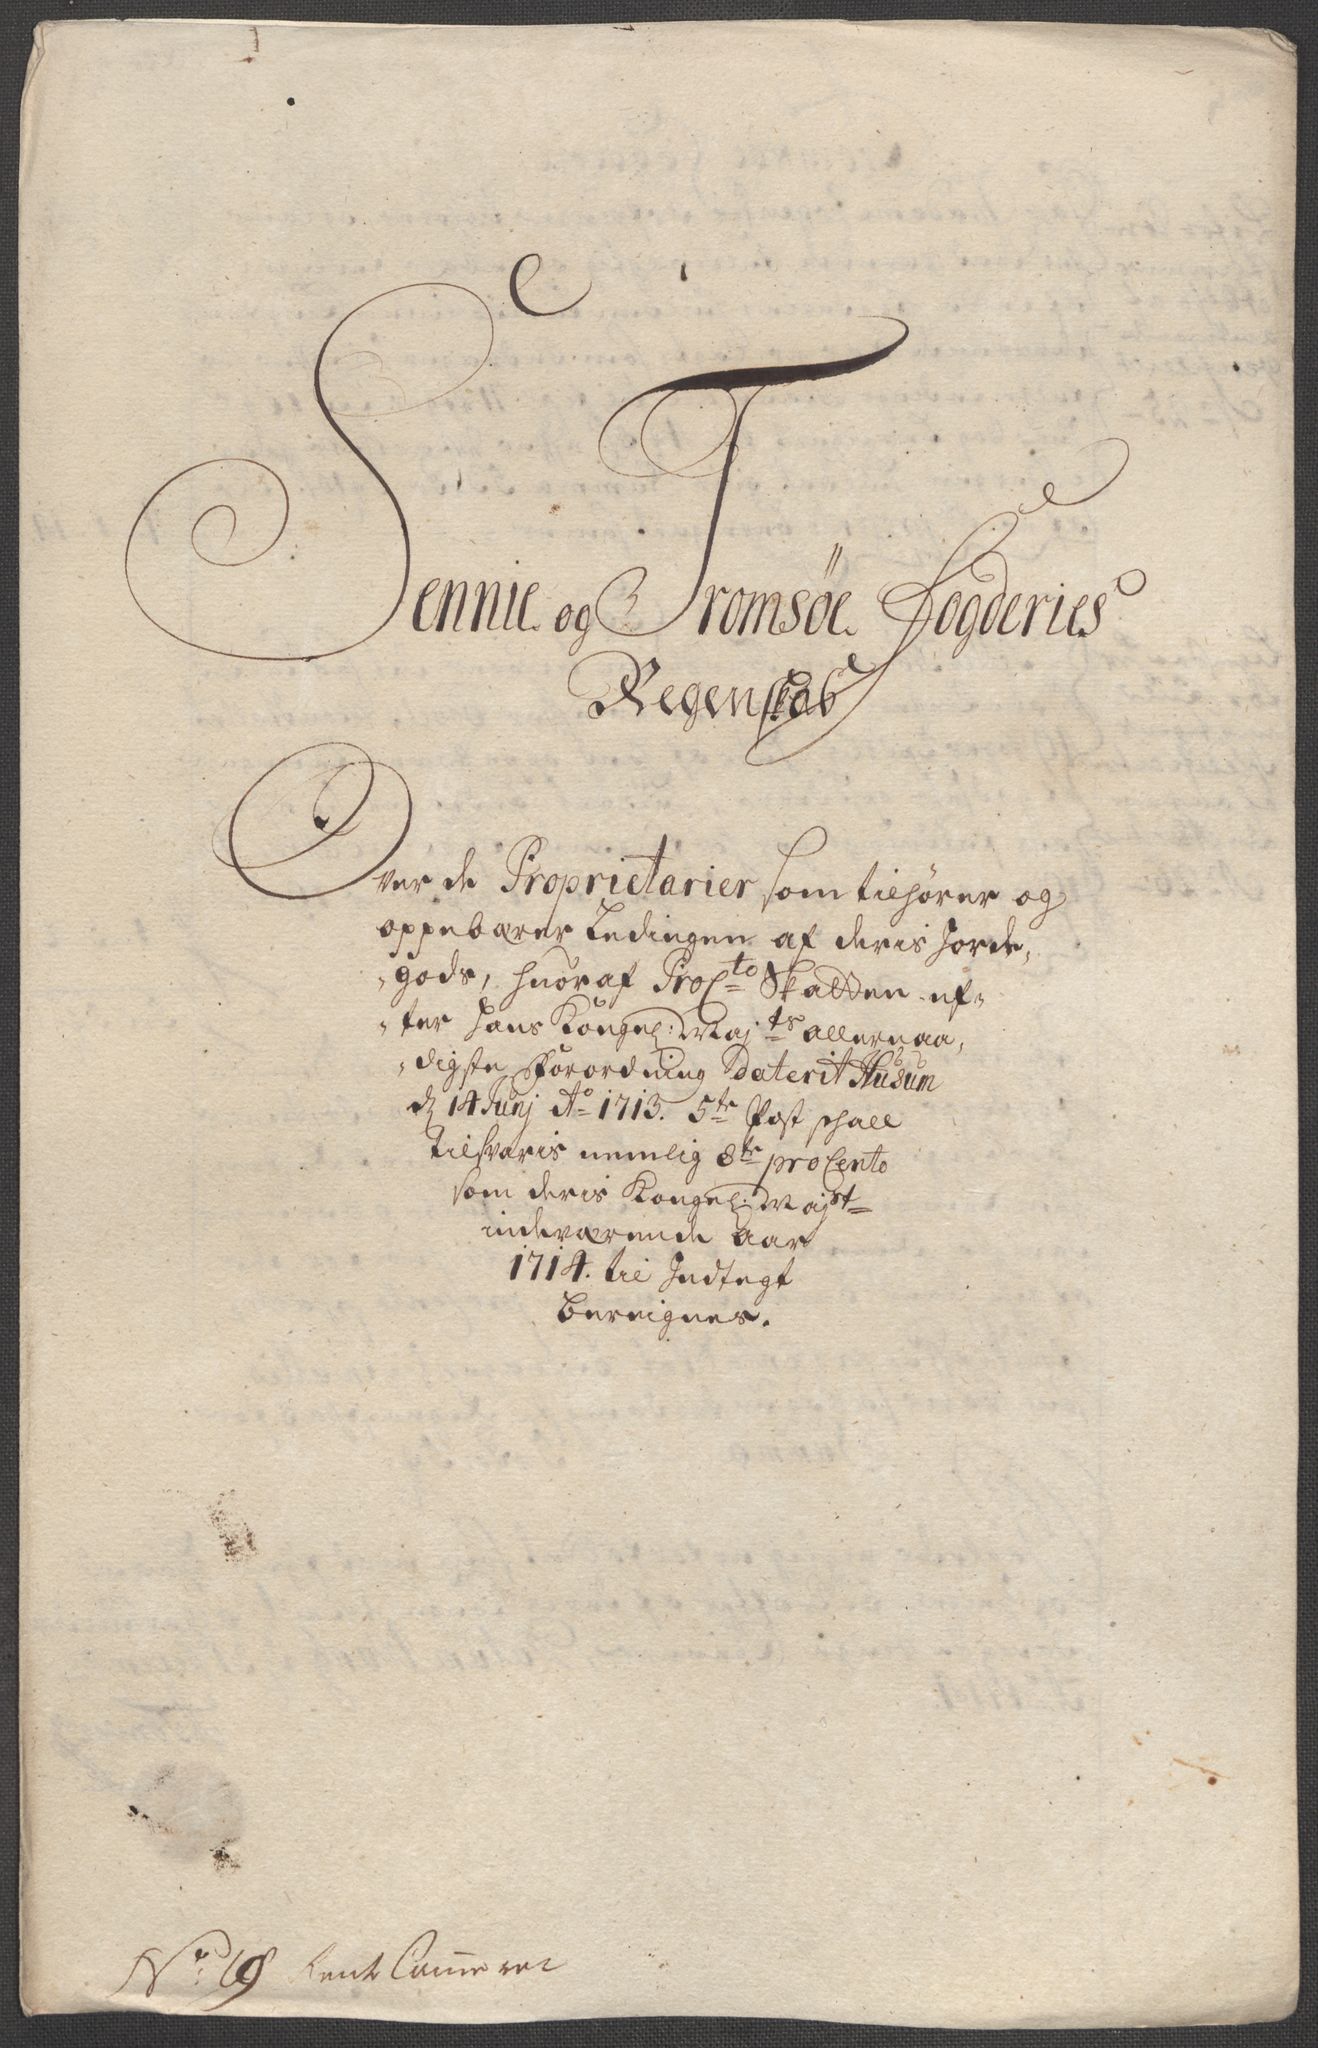 Sennie og Tromsøe Fogderies
Regenskab
Over de Proprietarier som tilhører og
oppebærer Ledingen af deris Jorde-
-gods, huoraf Proc:to Skatten ef-
-ter Hans Kongel: Maj:ts allernaa-
-digste Forordning Daterit Husum
d 14 Junj Ao 1713. 5te Post schall
tilsvaris nemlig 8te pro Cento
som deris Kongel: Majst
indeværende Aar
1714. til Indtegt
bereignes.
No: 69 Rente Cammeret